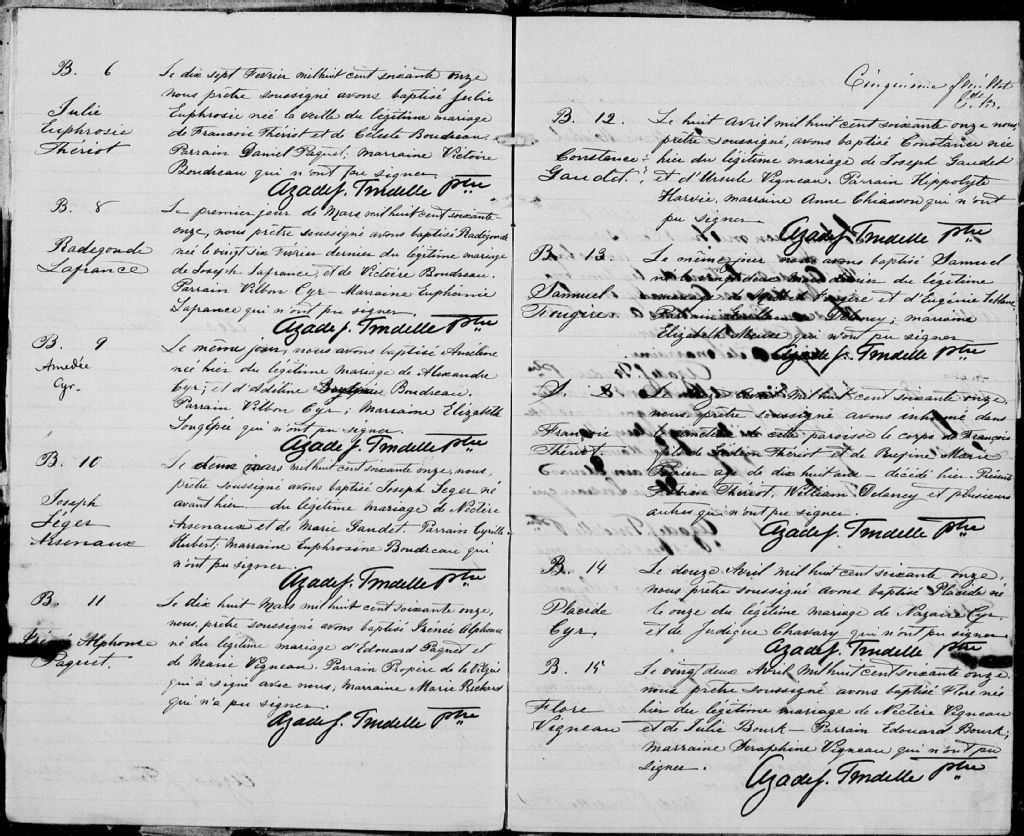 B. 6
Julie
Euphrosie
Thériot
Le dix sept Fevrier mil huit cent soixante onze
nous prêtre soussigné avons baptisé Julie
Euphrosie née la veille du légitime mariage
de Francois Thériot et de Céleste Boudreau.
Parrain Daniel Paquet; marraine Victoire
Boudreau qui n'ont pu signer.
Azade J. Trudelle Ptre
B. 8
Radegonde
Lafrance
Le premier jour de Mars mil huit cent soixante
onze, nous prêtre soussigné avons baptisé Radegonde
née le vingt six Fevrier dernier du légitime mariage
de Joseph Lafrance, et de Victoire Boudreau.
Parrain Vilbon Cyr - Marraine Euphémie
Lafrance qui n'ont pu signer.
Azade J. Trudelle Ptre
B. 9
Amedée
Cyr.
Le même jour, nous avons baptisé
né hier du légitime mariage de Alexandre
Cyr, et d'Adéline Boudreau.
Parrain Vilbon Cyr; Marraine Elizabeth
qui n'ont pu signer.
Azade J. Trudelle Ptre
B. 10
Joseph
Léger
Arsenaux
Le deux mars mil huit cent soixante onze, nous
prêtre soussigné avons baptisé Joseph Leger né
avant hier du légitime mariage de Nectère
Arsenaux et de Marie Gaudet Parrain Cyrille
Hubert; Marraine Euphrosine Boudreau qui
n'ont pu signer.
Azade J. Trudelle Ptre
B. 11
Alphonse
Paquet.
Le dix huit Mars mil huit cent soixante onze,
nous, prêtre soussigné avons baptisé Irénée Alphonse
né du légitime mariage d'Edouard Paquet et
de Marie Vigneau. Parrain Propère de la
qui à signé avec nous, Marraine Marie Richard
qui n'a pu signer.
Azade J. Trudelle Ptre
Cinquième
B. 12.
Constance
Gaudet.
Le huit Avril mil huit cent soixante onze nous,
prêtre soussigné, avons baptisé Constance née
hier du légitime mariage de Joseph Gaudet
et d'Ursule Vigneau. Parrain Hippolyte
Harvée, marraine Anne Chiasson qui n'ont
pu signer
Azade J. Trudelle Ptre
B. 13.
Samuel
Fougère
Le même jour nous avons baptisé Samuel
dernier du légitime
mariage de Fougère et d'Eugénie
Parrain Delaney; marraine
Elizabeth qui n'ont pu signer
Azade J. Trudelle Ptre
S. 8
François
Thériot
Avril mil huit cent soixante onze,
nous, prêtre soussigné avons inhumé dans
le cimetière de cette paroisse le corps de François
fils de Thériot et de Marie
agé de dix huit ans décédé hier.
Fabien Thériot, William Delaney et plusieurs
autres qui n'ont pu signer.
Azade J. Trudelle Ptre
B. 14
Placide
Cyr.
Le douze Avril mil huit cent soixante onze,
nous prêtre soussigné avons baptisé Placide né
le onze du légitime mariage de Nazaire Cyr
et de Judique Chavary qui n'ont pu signer
Azade J. Trudelle Ptre
B. 15
Flore
Vigneau
Le vingt deux Avril mil huit cent soixante onze
nous prêtre soussigné avons baptisé Flore née
hier du légitime mariage de Nectère Vigneau
et de Julie Bourk - Parrain Edouard Bourk;
marraine Séraphine Vigneau qui n'ont pu
signer.
Azade J. Trudelle Ptre